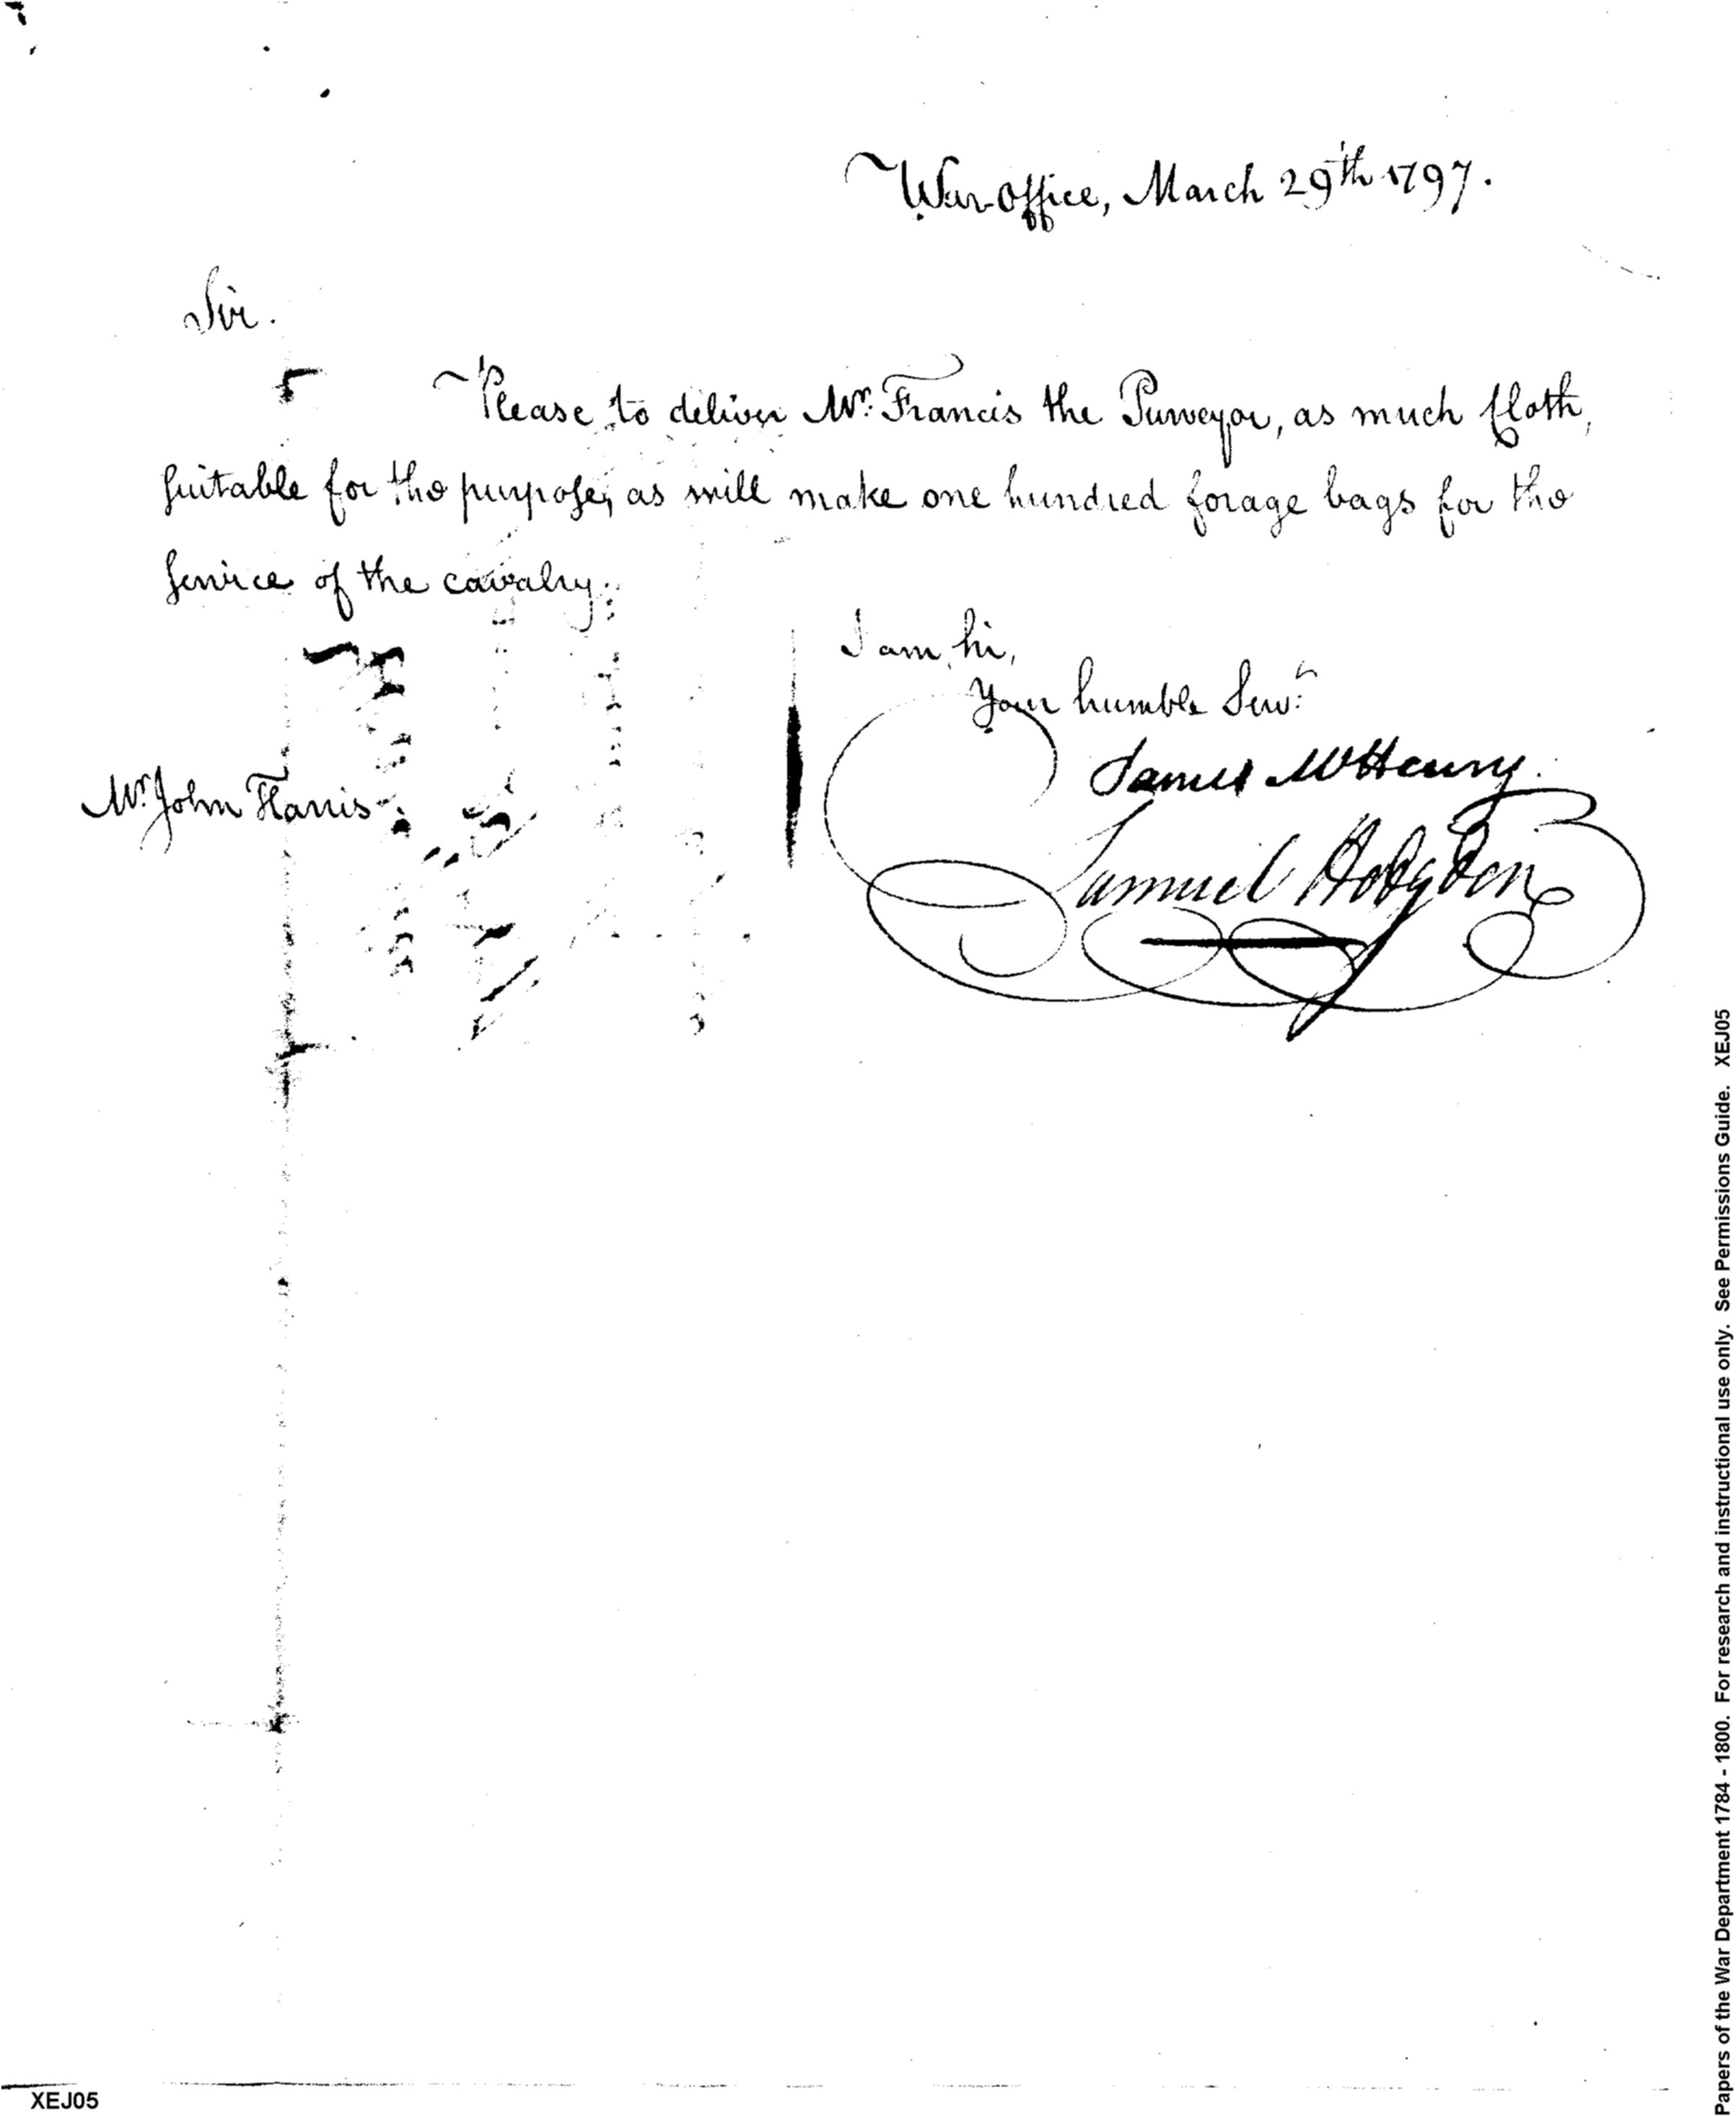 War-Office, March 29th 1797.
Sir.
Please to deliver Mr. Francis the Purveyor, as much Cloth,
suitable for the purpose, as will make one hundred forage bags for the
service of the cavalry.
I am, Sir,
Your humble Servt.
James McHenry.
Mr. John Harris
Samuel Hodgdon
XEJ05
Papers of the War Department 1784 - 1800. For research and instructional use only. See Permissions Guide. XEJ05